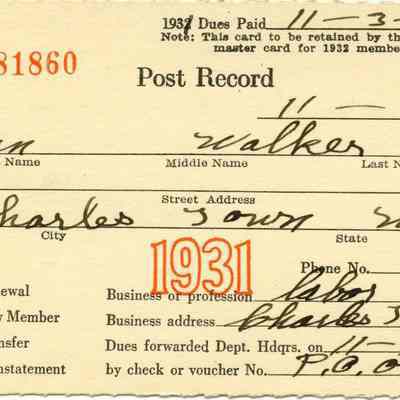 1931 Dues Paid 11-3-
Note: This card to be retained by th
master card for 1932 membe
81860
Post Record
11-
nn Walker
Name Middle Name Last N
Street Address
Charles Town W
City State
1931
Phone No.
ewal Business or profession labor
y Member Business address Charles T
nsfer Dues forwarded Dept. Hdqrs. on 11-
nstatement by check or voucher No. P.O. O